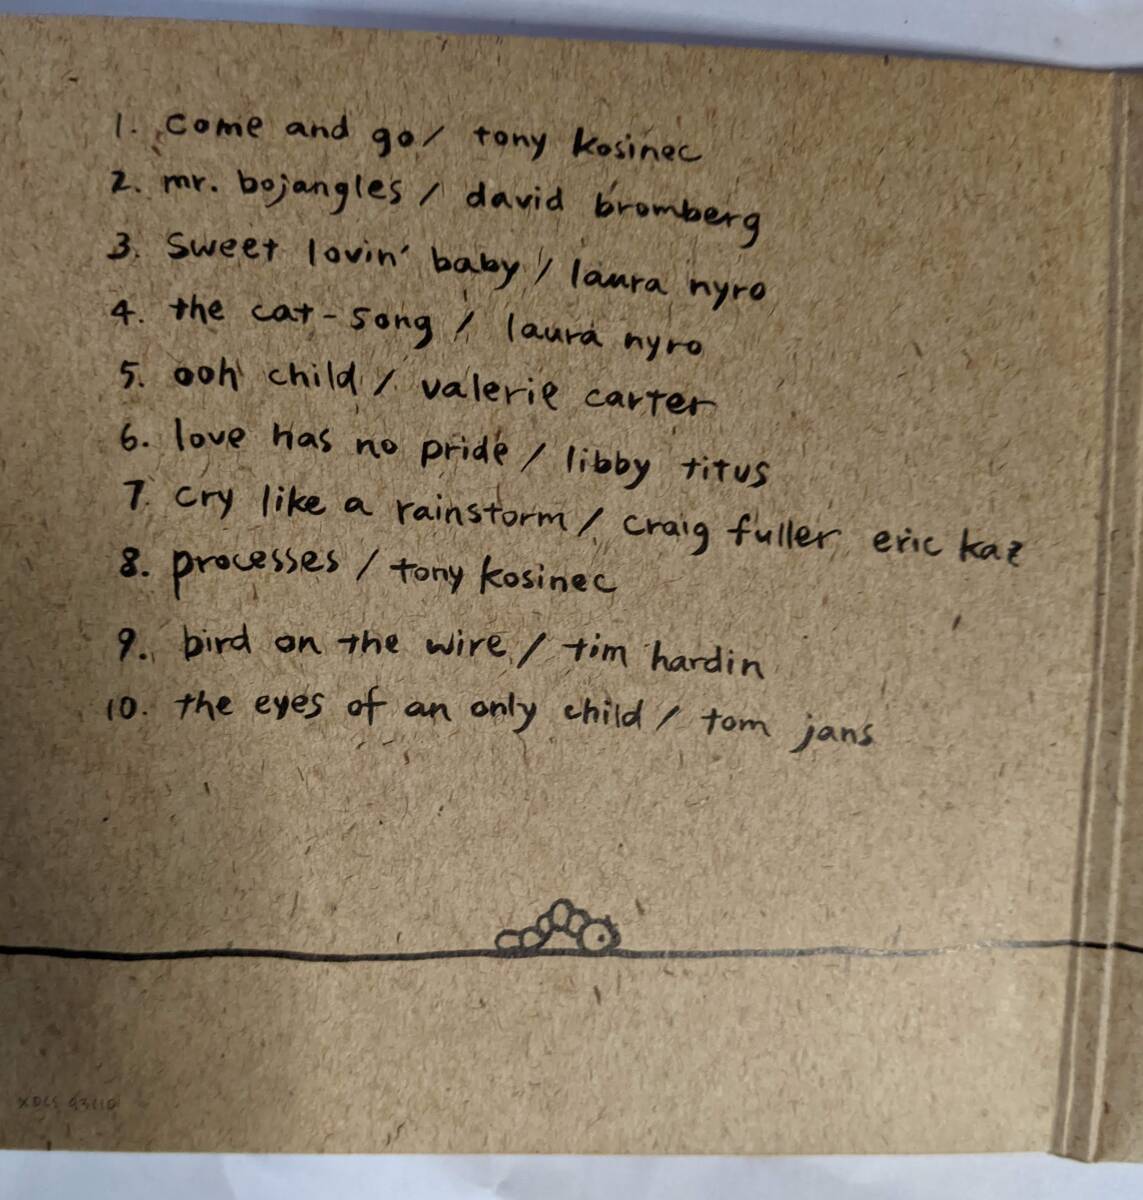 1. come and go / tony kosinec
2. mr. bojangles / david bromberg
3. sweet lovin' baby / laura nyro
4. the cat-song / laura nyro
5. ooh child / valerie carter
6. love has no pride / libby titus
7. cry like a rainstorm / craig fuller eric kaz
8. processes / tony kosinec
9. bird on the wire / tim hardin
10. the eyes of an only child / tom jans